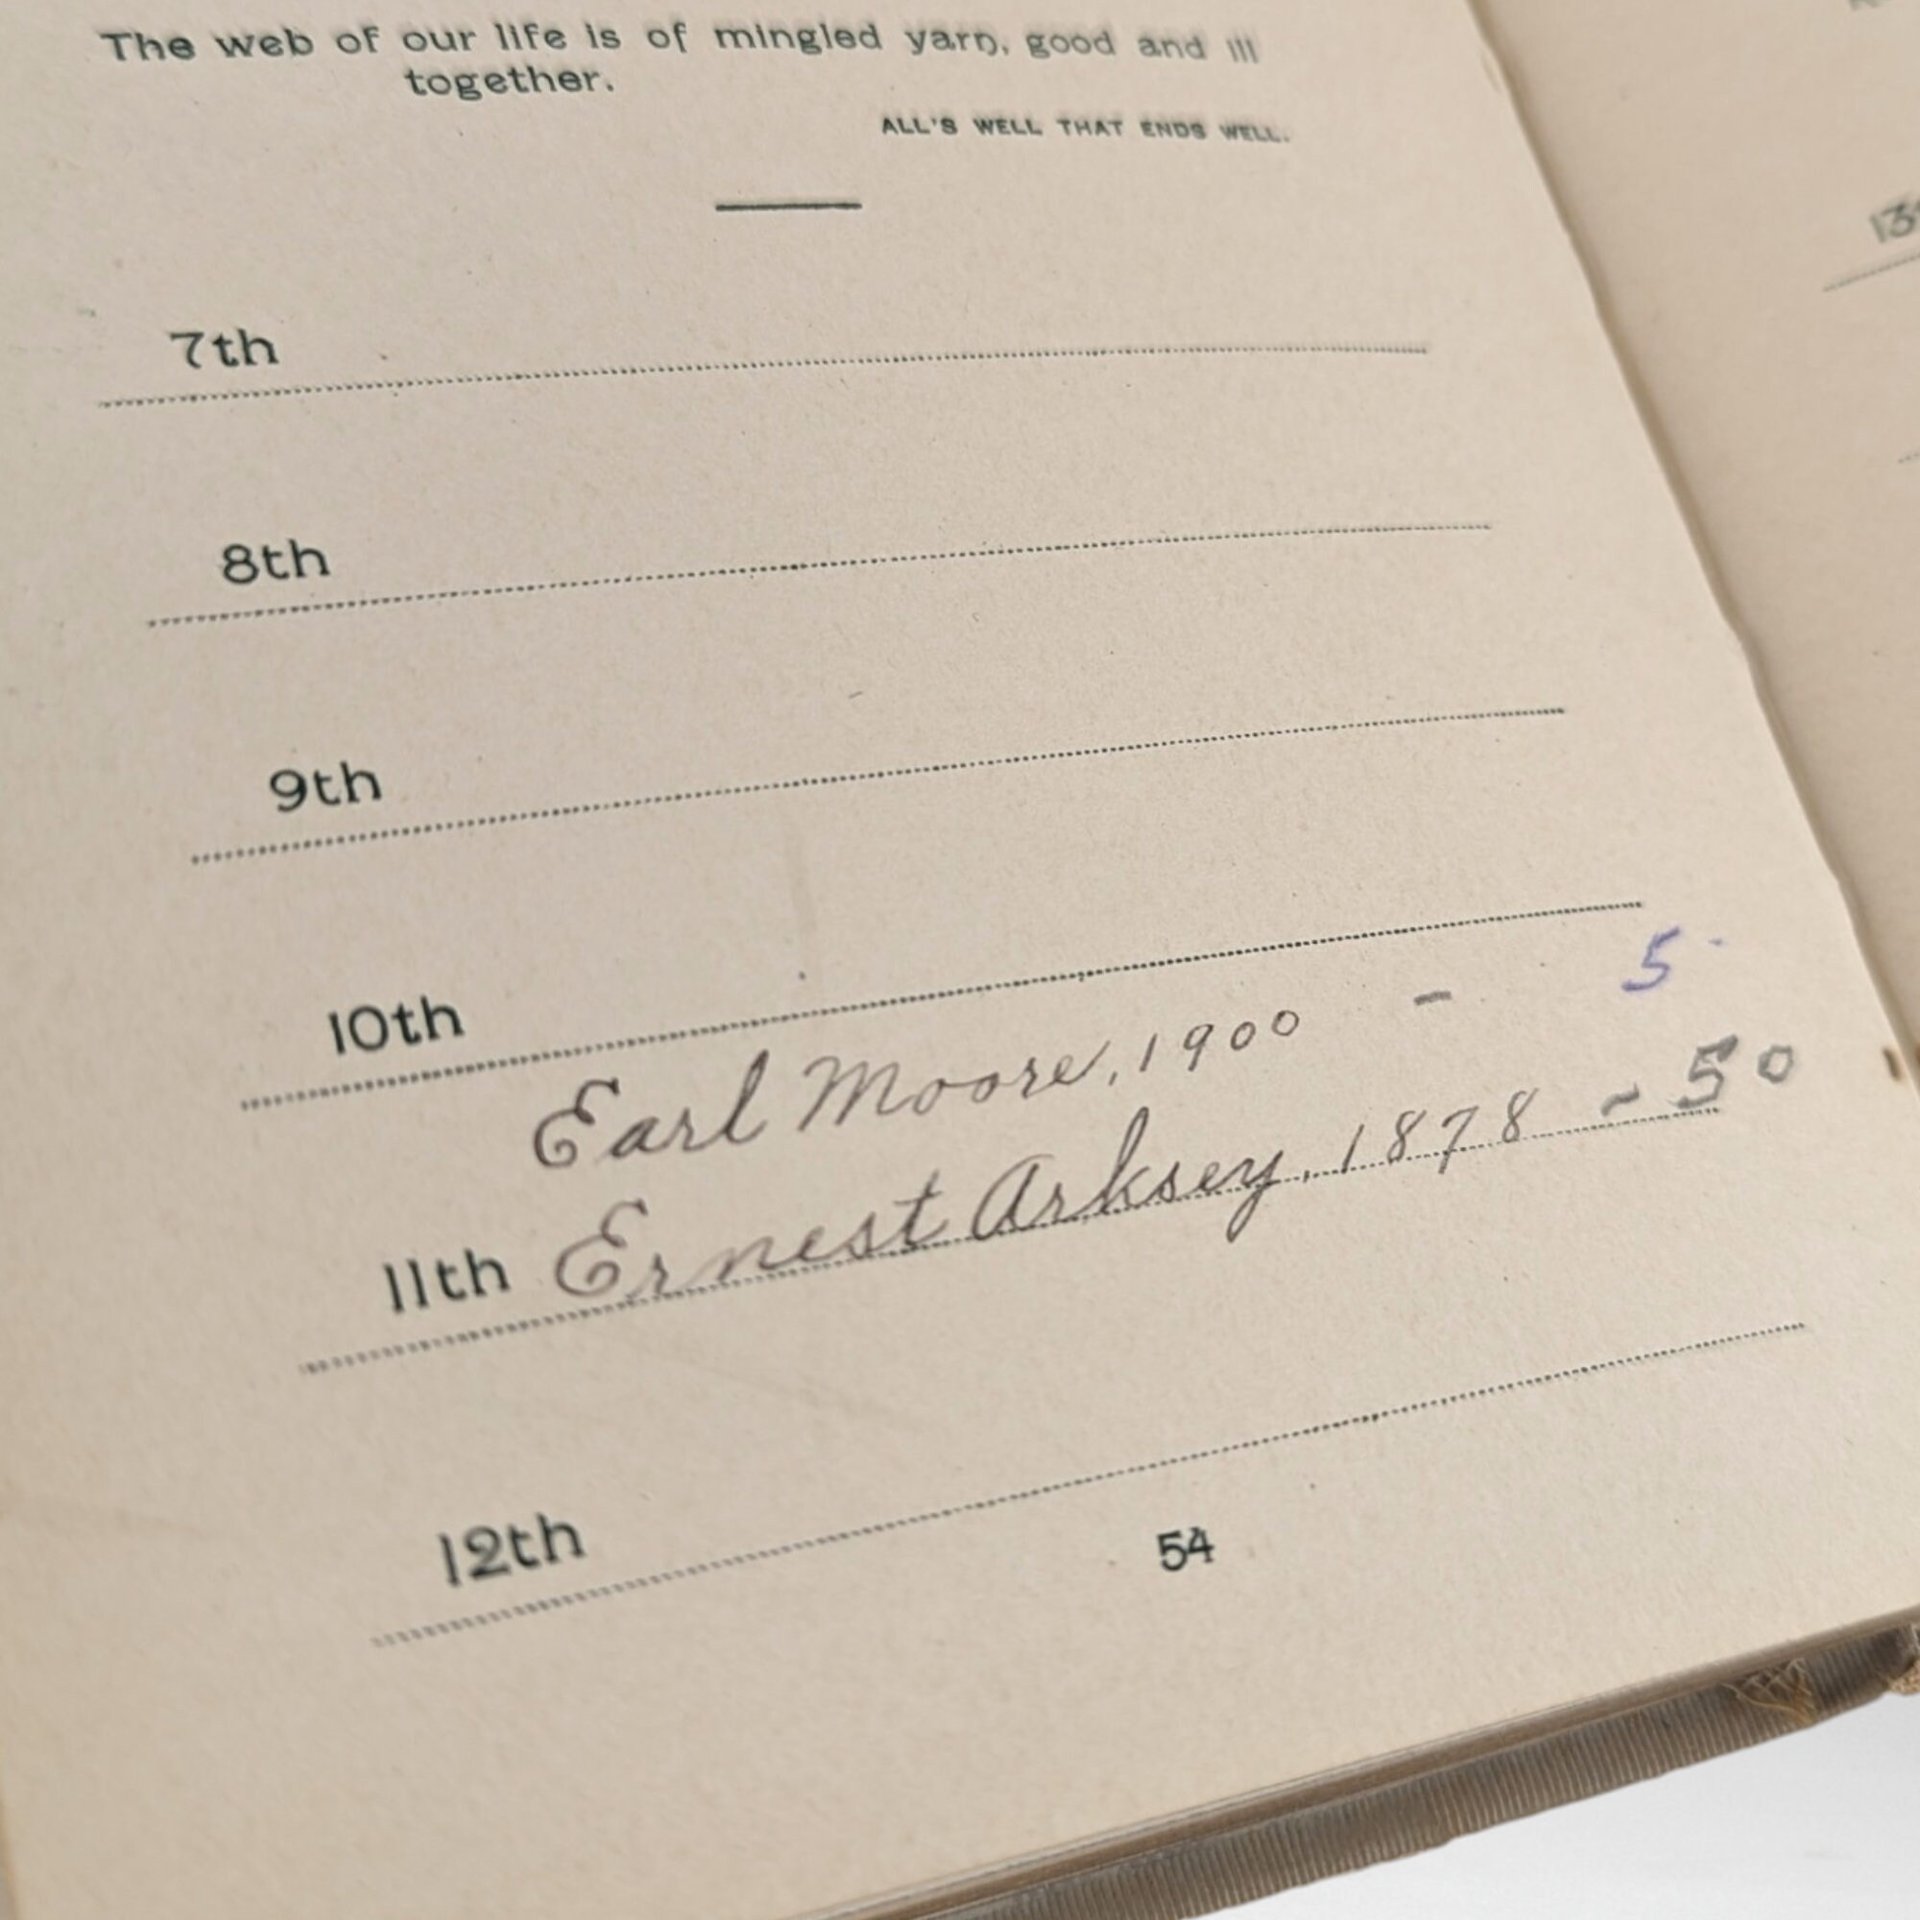 The web of our life is of mingled yarn, good and ill
together.
ALL'S WELL THAT ENDS WELL.
7th
8th
9th
10th
Earl Moore, 1900 - 5
11th Ernest Arksey, 1878 - 50
12th
54